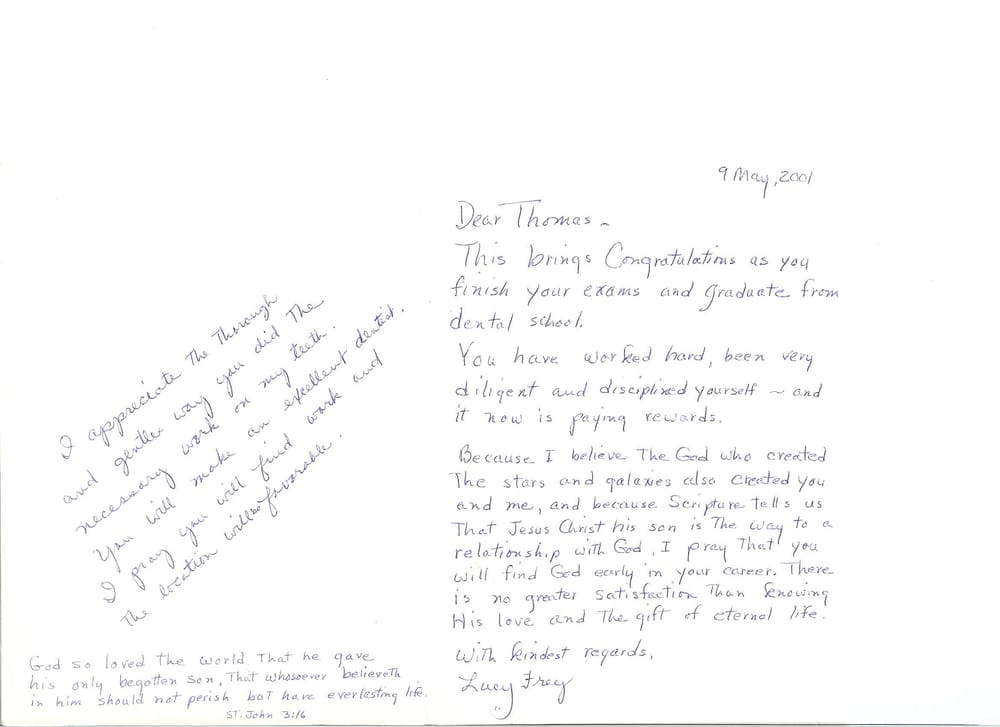 I appreciate The Thorough
and gentle way you did The
necessary work on my teeth.
You will make an excellent dentist.
I pray you will find work and
The location will be favorable.
God so loved the world That he gave
his only begotten son, That whosoever believeth
in him should not perish but have everlasting life.
ST. John 3:16
9 May, 2001
Dear Thomas ~
This brings Congratulations as you
finish your exams and graduate from
dental school.
You have worked hard, been very
diligent and disciplined yourself ~ and
it now is paying rewards.
Because I believe The God who created
The stars and galaxies also created you
and me, and because Scripture tells us
That Jesus Christ his son is The way to a
relationship with God, I pray That you
will find God early in your career. There
is no greater satisfaction Than knowing
His love and The gift of eternal life.
With kindest regards,
Lucy Frey